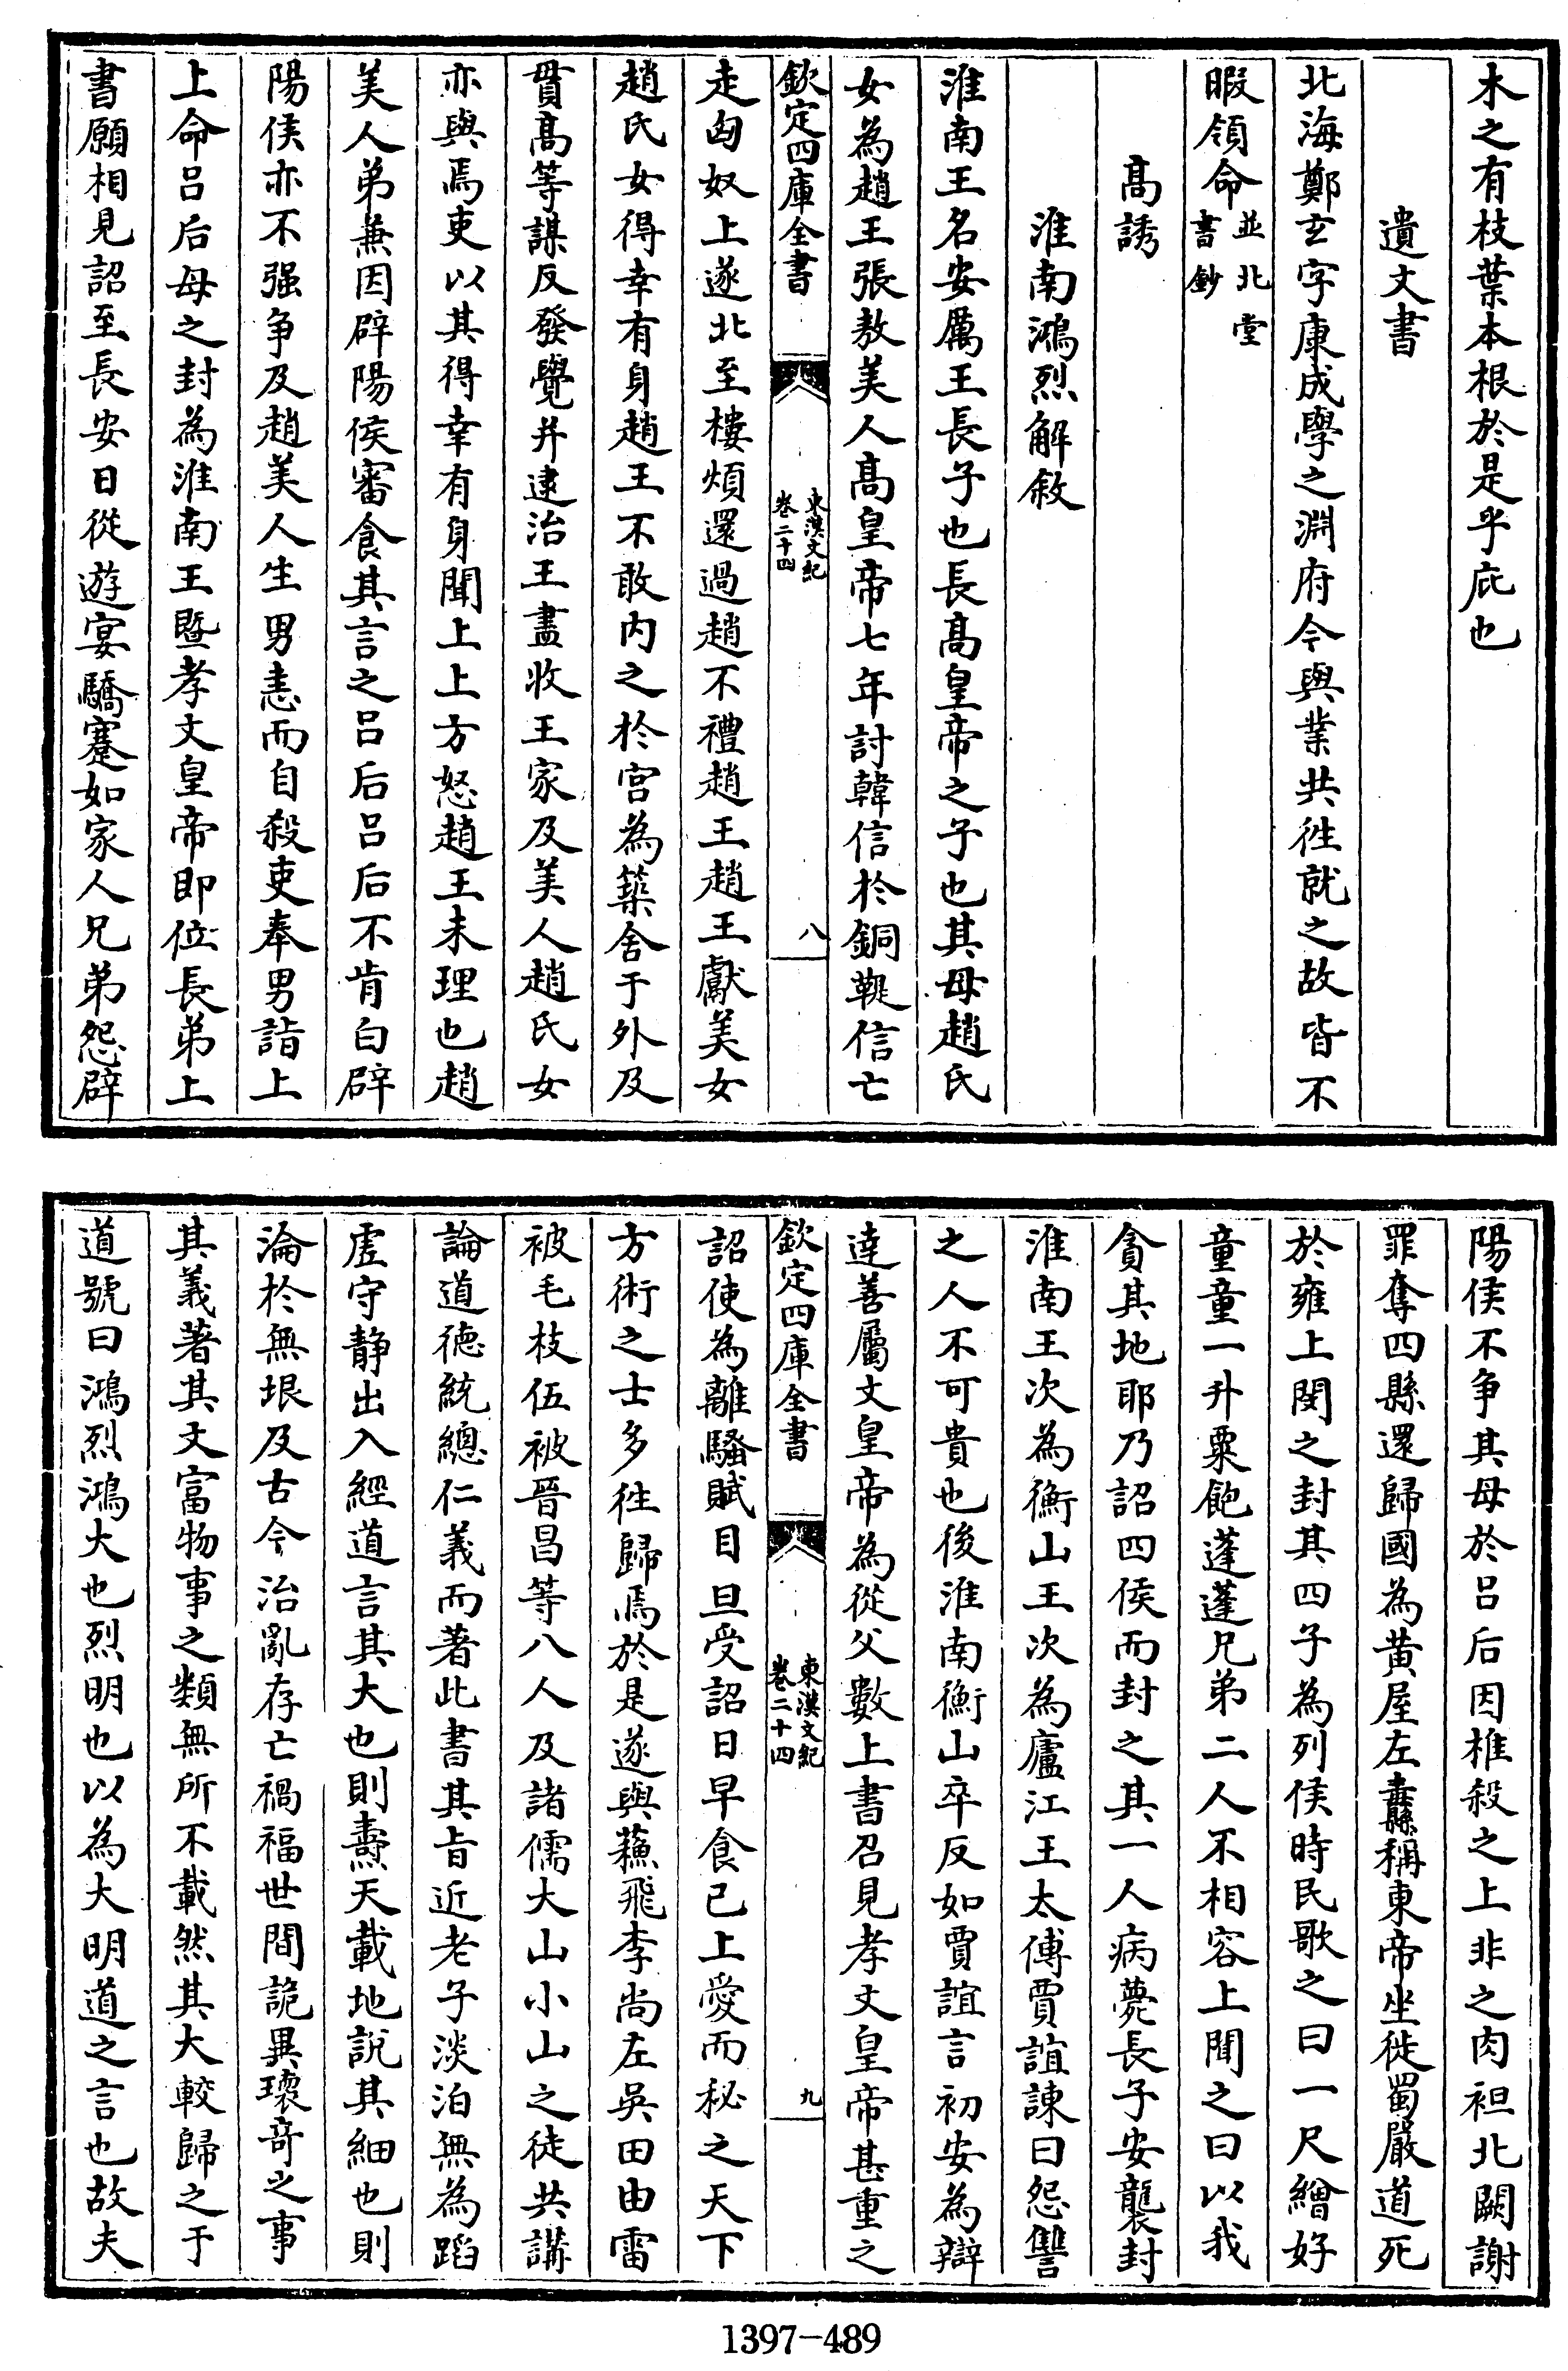 木之有枝葉本根於是乎庇也
遺文書
北海鄭玄字康成學之淵府今與業共徃就之故皆不
暇領命並北堂書鈔
高誘
淮南鴻烈解敘
淮南王名安厲王長子也長高皇帝之子也其母趙氏
女為趙王張敖美人高皇帝七年討韓信於銅鞮信亡
欽定四庫全書
東漢文紀
卷二十四
八
走匈奴上遂北至樓煩還過趙不禮趙王趙王獻美女
趙氏女得幸有身趙王不敢内之於宫為築舍于外及
貫高等謀反發覺并逮治王盡收王家及美人趙氏女
亦與焉吏以其得幸有身聞上上方怒趙王未理也趙
美人弟兼因辟陽侯審食其言之吕后吕后不肯白辟
陽侯亦不强争及趙美人生男恚而自殺吏奉男詣上
上命吕后母之封為淮南王暨孝文皇帝即位長弟上
書願相見詔至長安日從遊宴驕蹇如家人兄弟怨辟
陽侯不争其母於吕后因椎殺之上非之肉袒北闕謝
罪奪四縣還歸國為黄屋左纛稱東帝坐徙蜀嚴道死
於雍上閔之封其四子為列侯時民歌之曰一尺繒好
童童一升粟飽蓬蓬兄弟二人不相容上聞之曰以我
貪其地耶乃詔四侯而封之其一人病薨長子安襲封
淮南王次為衡山王次為廬江王太傅賈誼諫曰怨讐
之人不可貴也後淮南衡山卒反如賈誼言初安為辯
達善屬文皇帝為從父數上書召見孝文皇帝甚重之
欽定四庫全書
東漢文紀
卷二十四
九
詔使為離騷賦目旦受詔日早食已上愛而秘之天下
方術之士多徃歸焉於是遂與蘓飛李尚左吳田由雷
被毛枝伍被晉昌等八人及諸儒大山小山之徒共講
論道徳統總仁義而著此書其旨近老子淡泊無為蹈
虚守静出入經道言其大也則燾天載地說其細也則
淪於無垠及古今治亂存亡禍福世間詭異瓌竒之事
其義著其文富物事之類無所不載然其大較歸之于
道號曰鴻烈鴻大也烈明也以為大明道之言也故夫
1397-489